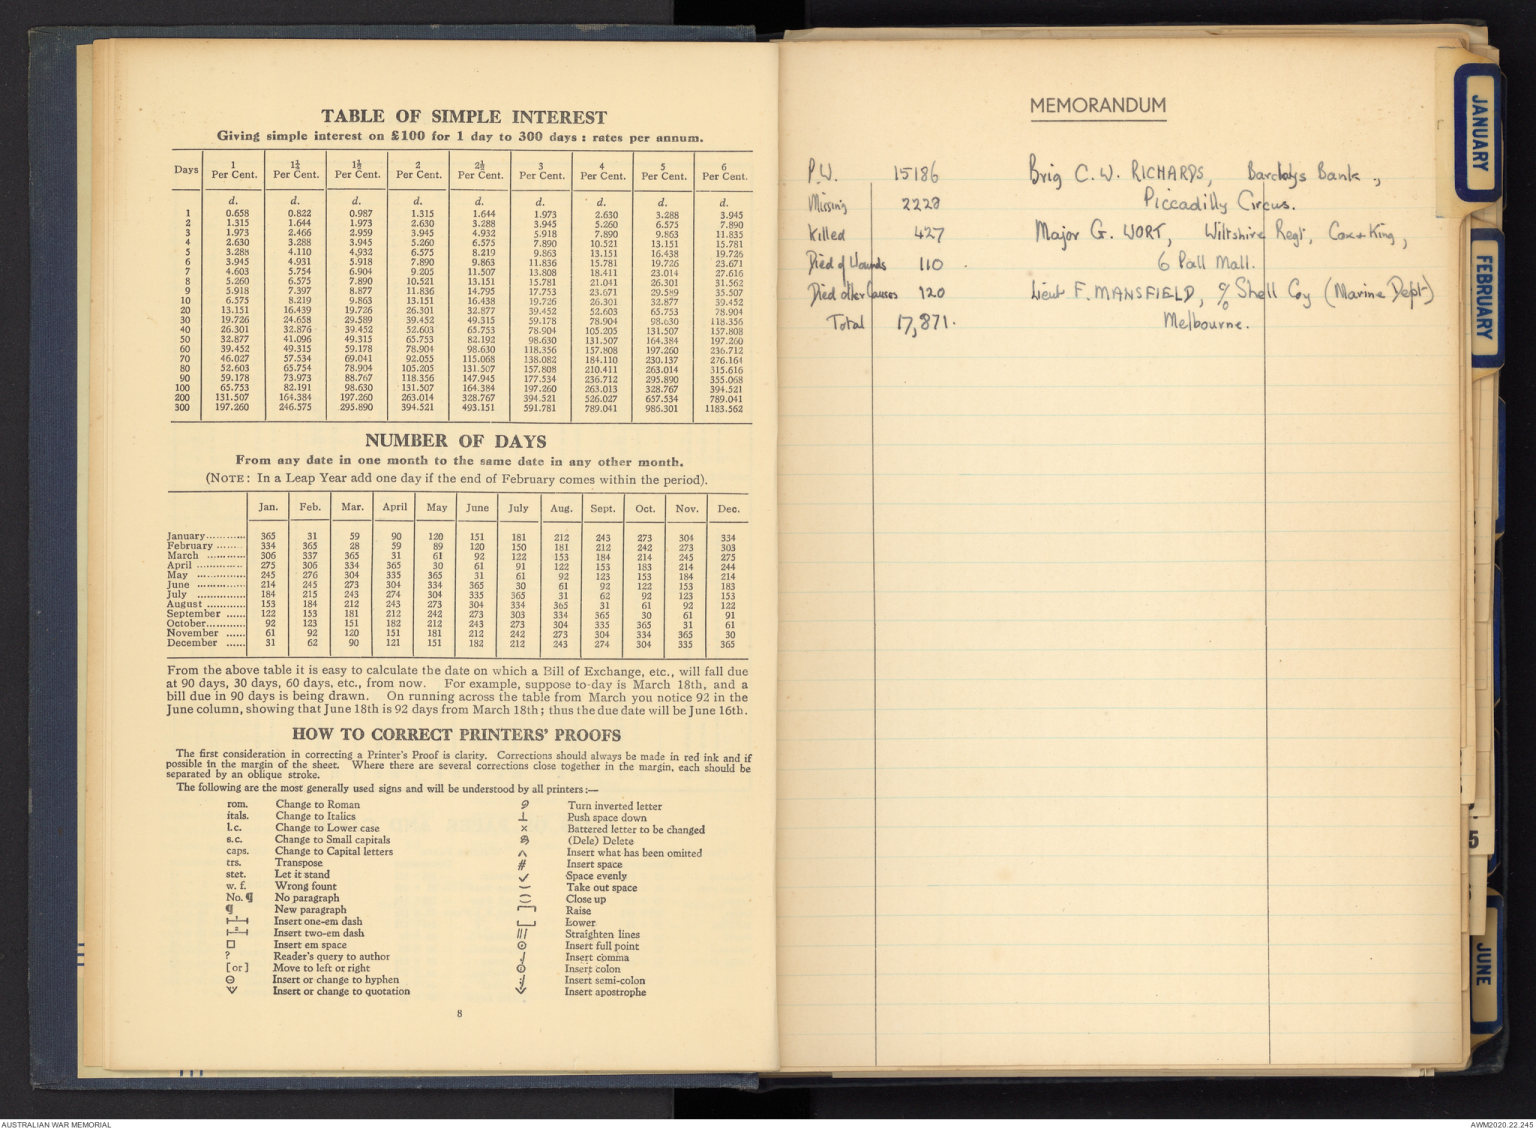 TABLE OF SIMPLE INTEREST
Giving simple interest on £100 for 1 day to 300 days : rates per annum.
Days 1 Per Cent. 1¼ Per Cent. 1½ Per Cent. 2 Per Cent. 2½ Per Cent. 3 Per Cent. 4 Per Cent. 5 Per Cent. 6 Per Cent.
d. d. d. d. d. d. d. d. d.
1 0.658 0.822 0.987 1.315 1.644 1.973 2.630 3.288 3.945
2 1.315 1.644 1.973 2.630 3.288 3.945 5.260 6.575 7.890
3 1.973 2.466 2.959 3.945 4.932 5.918 7.890 9.863 11.835
4 2.630 3.288 3.945 5.260 6.575 7.890 10.521 13.151 15.781
5 3.288 4.110 4.932 6.575 8.219 9.863 13.151 16.438 19.726
6 3.945 4.931 5.918 7.890 9.863 11.836 15.781 19.726 23.671
7 4.603 5.754 6.904 9.205 11.507 13.808 18.411 23.014 27.616
8 5.260 6.575 7.890 10.521 13.151 15.781 21.041 26.301 31.562
9 5.918 7.397 8.877 11.836 14.795 17.753 23.671 29.589 35.507
10 6.575 8.219 9.863 13.151 16.438 19.726 26.301 32.877 39.452
20 13.151 16.439 19.726 26.301 32.877 39.452 52.603 65.753 78.904
30 19.726 24.658 29.589 39.452 49.315 59.178 78.904 98.630 118.356
40 26.301 32.876 39.452 52.603 65.753 78.904 105.205 131.507 157.808
50 32.877 41.096 49.315 65.753 82.192 98.630 131.507 164.384 197.260
60 39.452 49.315 59.178 78.904 98.630 118.356 157.808 197.260 236.712
70 46.027 57.534 69.041 92.055 115.068 138.082 184.110 230.137 276.164
80 52.603 65.754 78.904 105.205 131.507 157.808 210.411 263.014 315.616
90 59.178 73.973 88.767 118.356 147.945 177.534 236.712 295.890 355.068
100 65.753 82.191 98.630 131.507 164.384 197.260 263.013 328.767 394.521
200 131.507 164.384 197.260 263.014 328.767 394.521 526.027 657.534 789.041
300 197.260 246.575 295.890 394.521 493.151 591.781 789.041 986.301 1183.562
NUMBER OF DAYS
From any date in one month to the same date in any other month.
(NOTE: In a Leap Year add one day if the end of February comes within the period).
Jan. Feb. Mar. April May June July Aug. Sept. Oct. Nov. Dec.
January........... 365 31 59 90 120 151 181 212 243 273 304 334
February ....... 334 365 28 59 89 120 150 181 212 242 273 303
March ........... 306 337 365 31 61 92 122 153 184 214 245 275
April .............. 275 306 334 365 30 61 91 122 153 183 214 244
May ............... 245 276 304 335 365 31 61 92 123 153 184 214
June .............. 214 245 273 304 334 365 30 61 92 122 153 183
July ............... 184 215 243 274 304 335 365 31 62 92 123 153
August ............ 153 184 212 243 273 304 334 365 31 61 92 122
September ...... 122 153 181 212 242 273 303 334 365 30 61 91
October............ 92 123 151 182 212 243 273 304 335 365 31 61
November ...... 61 92 120 151 181 212 242 273 304 334 365 30
December ...... 31 62 90 121 151 182 212 243 274 304 335 365
From the above table it is easy to calculate the date on which a Bill of Exchange, etc., will fall due
at 90 days, 30 days, 60 days, etc., from now. For example, suppose to-day is March 18th, and a
bill due in 90 days is being drawn. On running across the table from March you notice 92 in the
June column, showing that June 18th is 92 days from March 18th; thus the due date will be June 16th.
HOW TO CORRECT PRINTERS' PROOFS
The first consideration in correcting a Printer's Proof is clarity. Corrections should always be made in red ink and if
possible in the margin of the sheet. Where there are several corrections close together in the margin, each should be
separated by an oblique stroke.
The following are the most generally used signs and will be understood by all printers:—
rom. Change to Roman
itals. Change to Italics
l.c. Change to Lower case
s.c. Change to Small capitals
caps. Change to Capital letters
trs. Transpose
stet. Let it stand
w. f. Wrong fount
No. ¶ No paragraph
¶ New paragraph
Insert one-em dash
Insert two-em dash
□ Insert em space
? Reader's query to author
[ or ] Move to left or right
Insert or change to hyphen
Insert or change to quotation
Turn inverted letter
⊥ Push space down
× Battered letter to be changed
(Dele) Delete
⁁ Insert what has been omitted
# Insert space
✓ Space evenly
Take out space
Close up
Raise
Lower
/// Straighten lines
⊙ Insert full point
Insert comma
Insert colon
Insert semi-colon
Insert apostrophe
8
MEMORANDUM
P.W. 15186
Missing 2228
Killed 427
Died of Wounds 110
Died other Causes 120
Total 17,871.
Brig C. W. RICHARDS, Barclays Bank.,
Piccadilly Circus.
Major G. WORT, Wiltshire Regt, Cox & King,
6 Pall Mall.
Lieut F. MANSFIELD, c/o Shell Coy (Marine Dept)
Melbourne.
JANUARY
FEBRUARY
5
JUNE
AUSTRALIAN WAR MEMORIAL
AWM2020.22.245